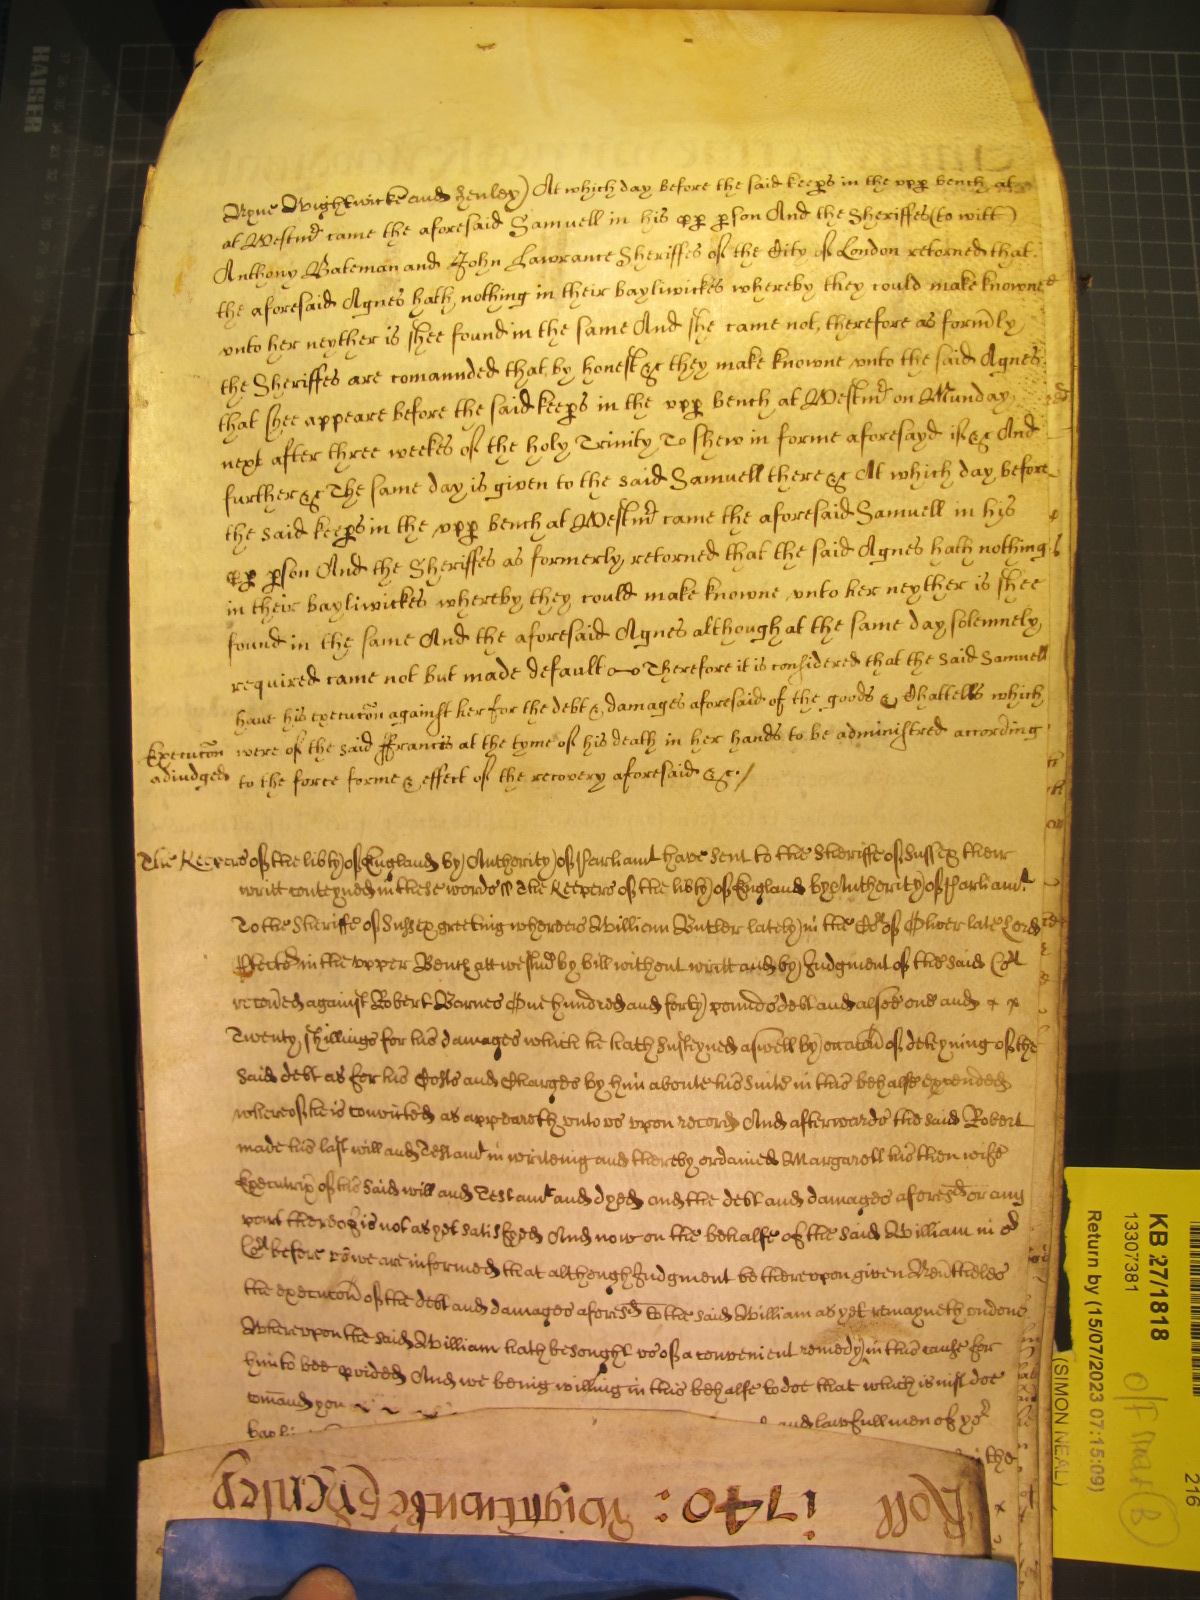 Ryne Wightwicke and Henley) At which day before the said keeps in the upp bench at
at Westmr came the aforesaid Samuell in his pp pson And the Sheriffes (to witt)
Anthony Bateman and John Lawrance Sheriffes of the City of London retorned that
the aforesaid Agnes hath nothing in their bayliwickes whereby they could make knowne
unto her neyther is shee found in the same And she came not, therefore as formly
the Sheriffes are comannded that by honest &c they make knowne unto the said Agnes
that shee appeare before the said keeps in the upp bench at Westmr on Munday
next after three weekes of the holy Trinity To shew in forme aforesayd if &c And
further &c The same day is given to the said Samuell there &c At which day before
the said keeps in the upp bench at Westmr came the aforesaid Samuell in his
pp pson And the Sheriffes as formerly retorned that the said Agnes hath nothing
in their bayliwickes whereby they could make knowne unto her neyther is shee
found in the same And the aforesaid Agnes although at the same day solemnely
required came not but made default Therefore it is considered that the said Samuell
have his execucon against her for the debt & damages aforesaid of the goods & Chattells which
Execucon adiudged
were of the said ffrancis at the tyme of his death in her hands to be administred according
to the force forme & effect of the recovery aforesaid &c./
The Keepers of the libty of England by Authority of Parliamt have sent to the Sheriffe of Sussex their
writt conteyned in these words ss The Keepers of the libty of England by Authority of Parliamt
To the Sheriffe of Sussex greeting whereas William Butler lately in the Cot of Oliver late Lord
Ptector in the upper Bench att westmr by bill without writt and by Judgment of the said Cot
recoved against Robert Barnes One hundred and forty pounds debt and alsoe one and
Twenty shillings for his damages which he hath susteyned aswell by occacon of deteyning of the
said debt as for his Costs and Charges by him aboute his suite in this behalfe expended
whereof he is convicted as appeareth unto us upon record And afterwards the said Robert
made his last will and Testamt in writeinig and thereby ordained Margarett his then wife
Executrix of his said will and Testamt and dyed and the debt and damages aforesd or any
part thereof is not as yet satisfyed And now on the behalfe of the said William in or
Cot before us we are informed that although Judgment be thereupon given Neutheles
the execucon of the debt and damages aforesd to the said William as yet remayneth undone
Whereupon the said William hath besought us of a convenient remedy in this cause for
him to bee pvided And we being willing in this behalfe to doe that which is iust doe
comand you
and lawfull men of yor
the
Roll 1740: Wightwicke & Henley
HAISER
KB 27/1818
13307381
Return by (15/07/2023 07:15:09)
(SIMON NEAL)
216
B